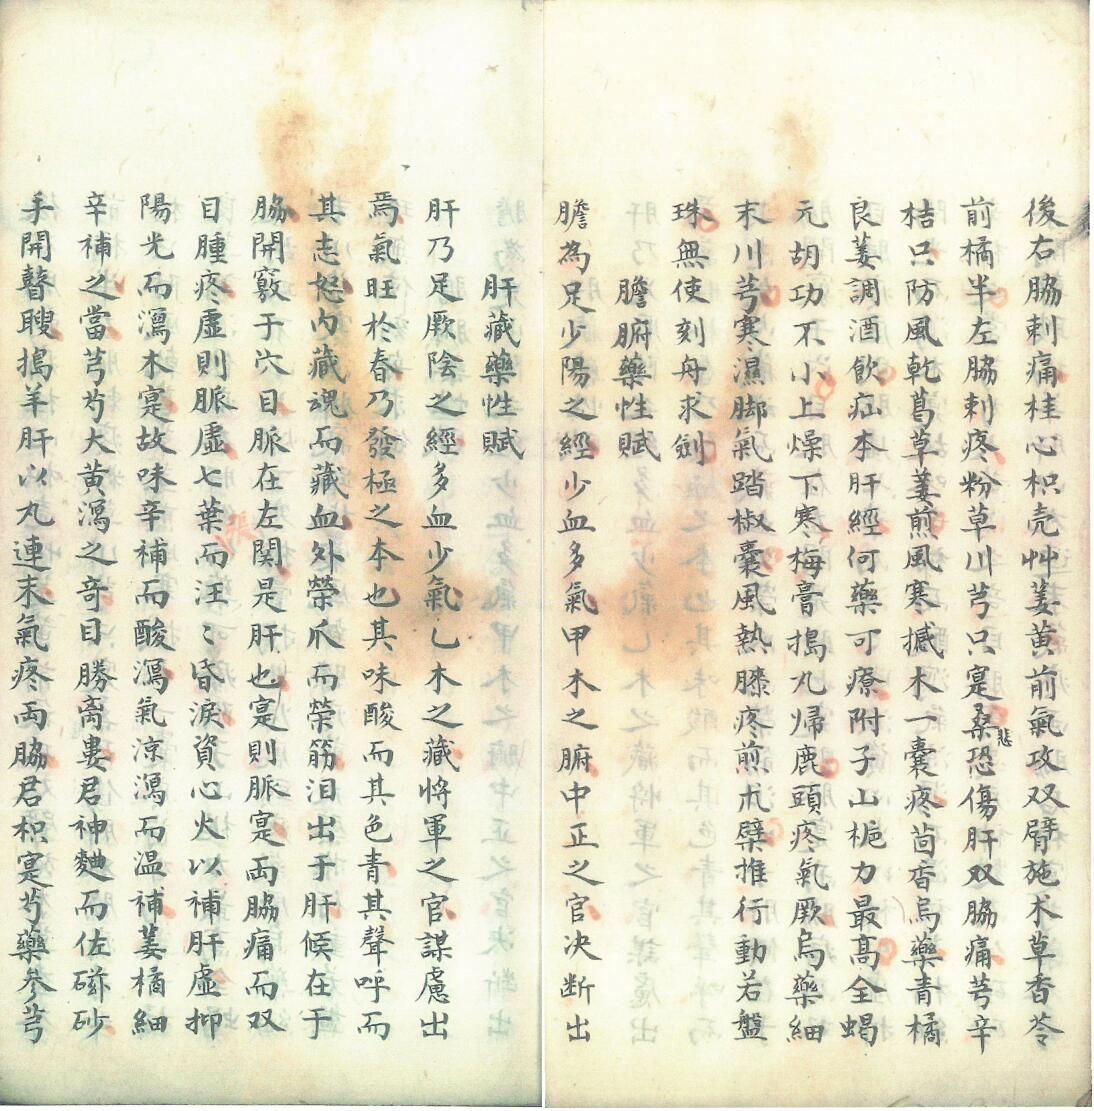 後右脇刺痛桂心枳壳艸姜黄前氣攻双臂施术草香苓
前橘半左脇刺疼粉草川芎只寔桑恐悲傷肝双脇痛芎辛
桔只防風乾葛草姜煎風寒撼木一囊疼茴香烏藥青橘
良姜調酒飲疝本肝經何藥可療附子山梔力最髙全蝎
元胡功不小上燥下寒梅膏搗丸归鹿頭疼氣厥烏藥細
末川芎寒濕脚氣踏椒囊風熱膝疼煎朮檗推行動若盤
珠無使刻舟求劍
膽腑藥性賦
膽為足少陽之經少血多氣甲木之腑中正之官决断出
肝藏藥性賦
肝乃足厥陰之經多血少氣乙木之藏將軍之官謀慮出
焉氣旺於春乃發極之本也其味酸而其色青其聲呼而
其志怒内藏魂而藏血外榮爪而榮筋泪出于肝候在于
脇開竅于穴目脈在左関是肝也寔則脈寔両脇痛而双
目腫疼虚則脈虚七葉而汪〻昏淚資心火以補肝虚抑
陽光而瀉木寔故味辛補而酸瀉氣凉瀉而温補姜橘細
辛補之當芎芍大黄瀉之奇目勝离婁君神麯而佐磁砂
手開瞽瞍搗羊肝以丸連末氣疼両脇君枳寔芍藥參芎